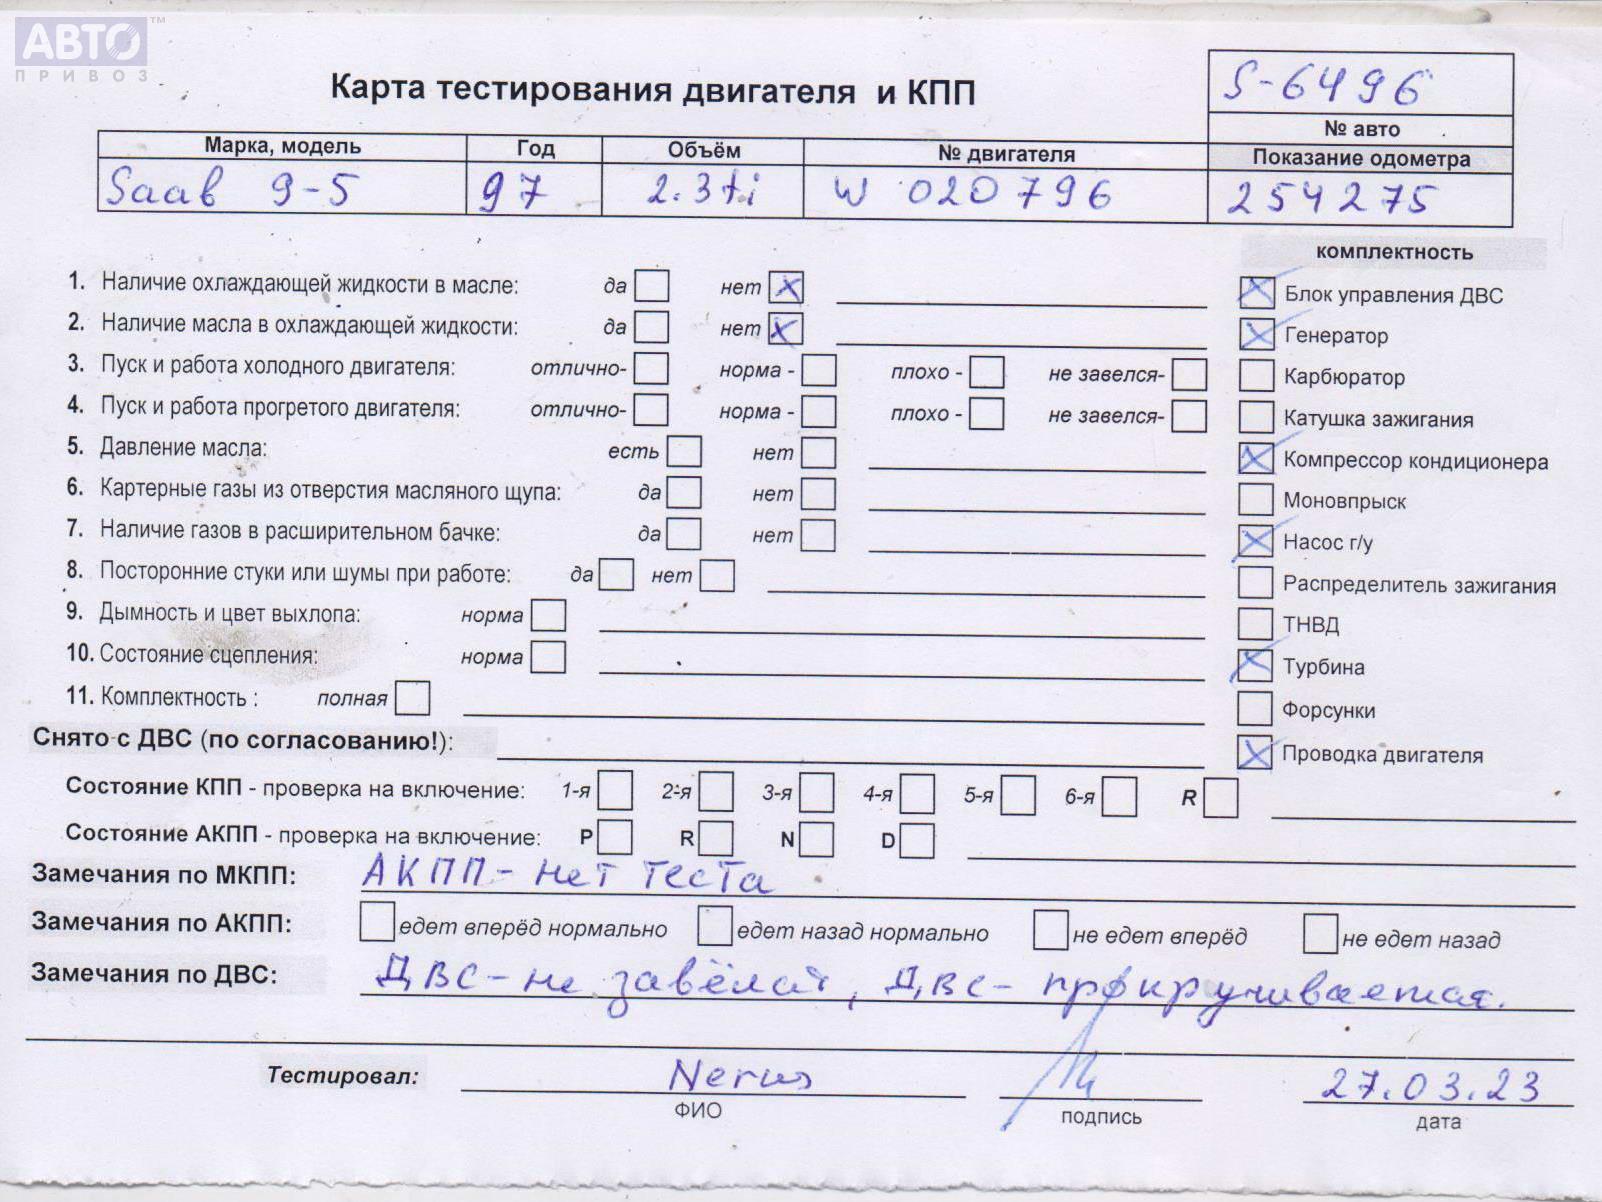 АВТО ™
ПРИВОЗ
Карта тестирования двигателя и КПП
S-6496
№ авто
Марка, модель Год Объём № двигателя Показание одометра
Saab 9-5 97 2.3ti W 020796 254275
комплектность
1. Наличие охлаждающей жидкости в масле: да нет X
2. Наличие масла в охлаждающей жидкости: да нет X
3. Пуск и работа холодного двигателя: отлично- норма - плохо - не завелся-
4. Пуск и работа прогретого двигателя: отлично- норма - плохо - не завелся-
5. Давление масла: есть нет
6. Картерные газы из отверстия масляного щупа: да нет
7. Наличие газов в расширительном бачке: да нет
8. Посторонние стуки или шумы при работе: да нет
9. Дымность и цвет выхлопа: норма
10. Состояние сцепления: норма
11. Комплектность : полная
X Блок управления ДВС
X Генератор
Карбюратор
Катушка зажигания
X Компрессор кондиционера
Моновпрыск
X Насос г/у
Распределитель зажигания
ТНВД
X Турбина
Форсунки
X Проводка двигателя
Снято с ДВС (по согласованию!):
Состояние КПП - проверка на включение: 1-я 2-я 3-я 4-я 5-я 6-я R
Состояние АКПП - проверка на включение: P R N D
Замечания по МКПП: АКПП - нет теста
Замечания по АКПП: едет вперёд нормально едет назад нормально не едет вперёд не едет назад
Замечания по ДВС: ДВС - не завёлся, ДВС - прокручивается.
Тестировал: Nerus 27.03.23
ФИО подпись дата